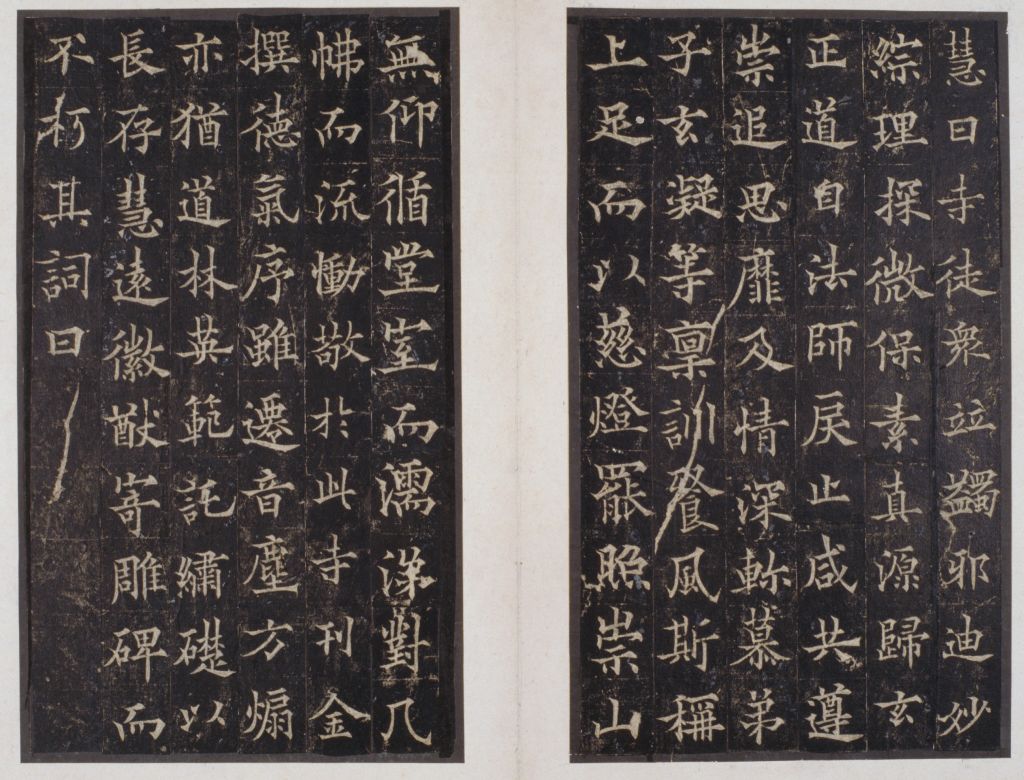 慧日寺徒衆竝蠲邪迪妙
綜理探微保素真源歸玄
正道自法師戾止咸共遵
崇追思靡及情深軫慕弟
子玄凝等稟訓餐風斯稱
上足而以慈燈罷照崇山
無仰循堂室而濡涕對几
㡊而流慟敬於此寺刊金
撰德氣序雖遷音塵方煽
亦猶道林英範託繡礎以
長存慧遠徽猷寄雕碑而
不朽其詞曰